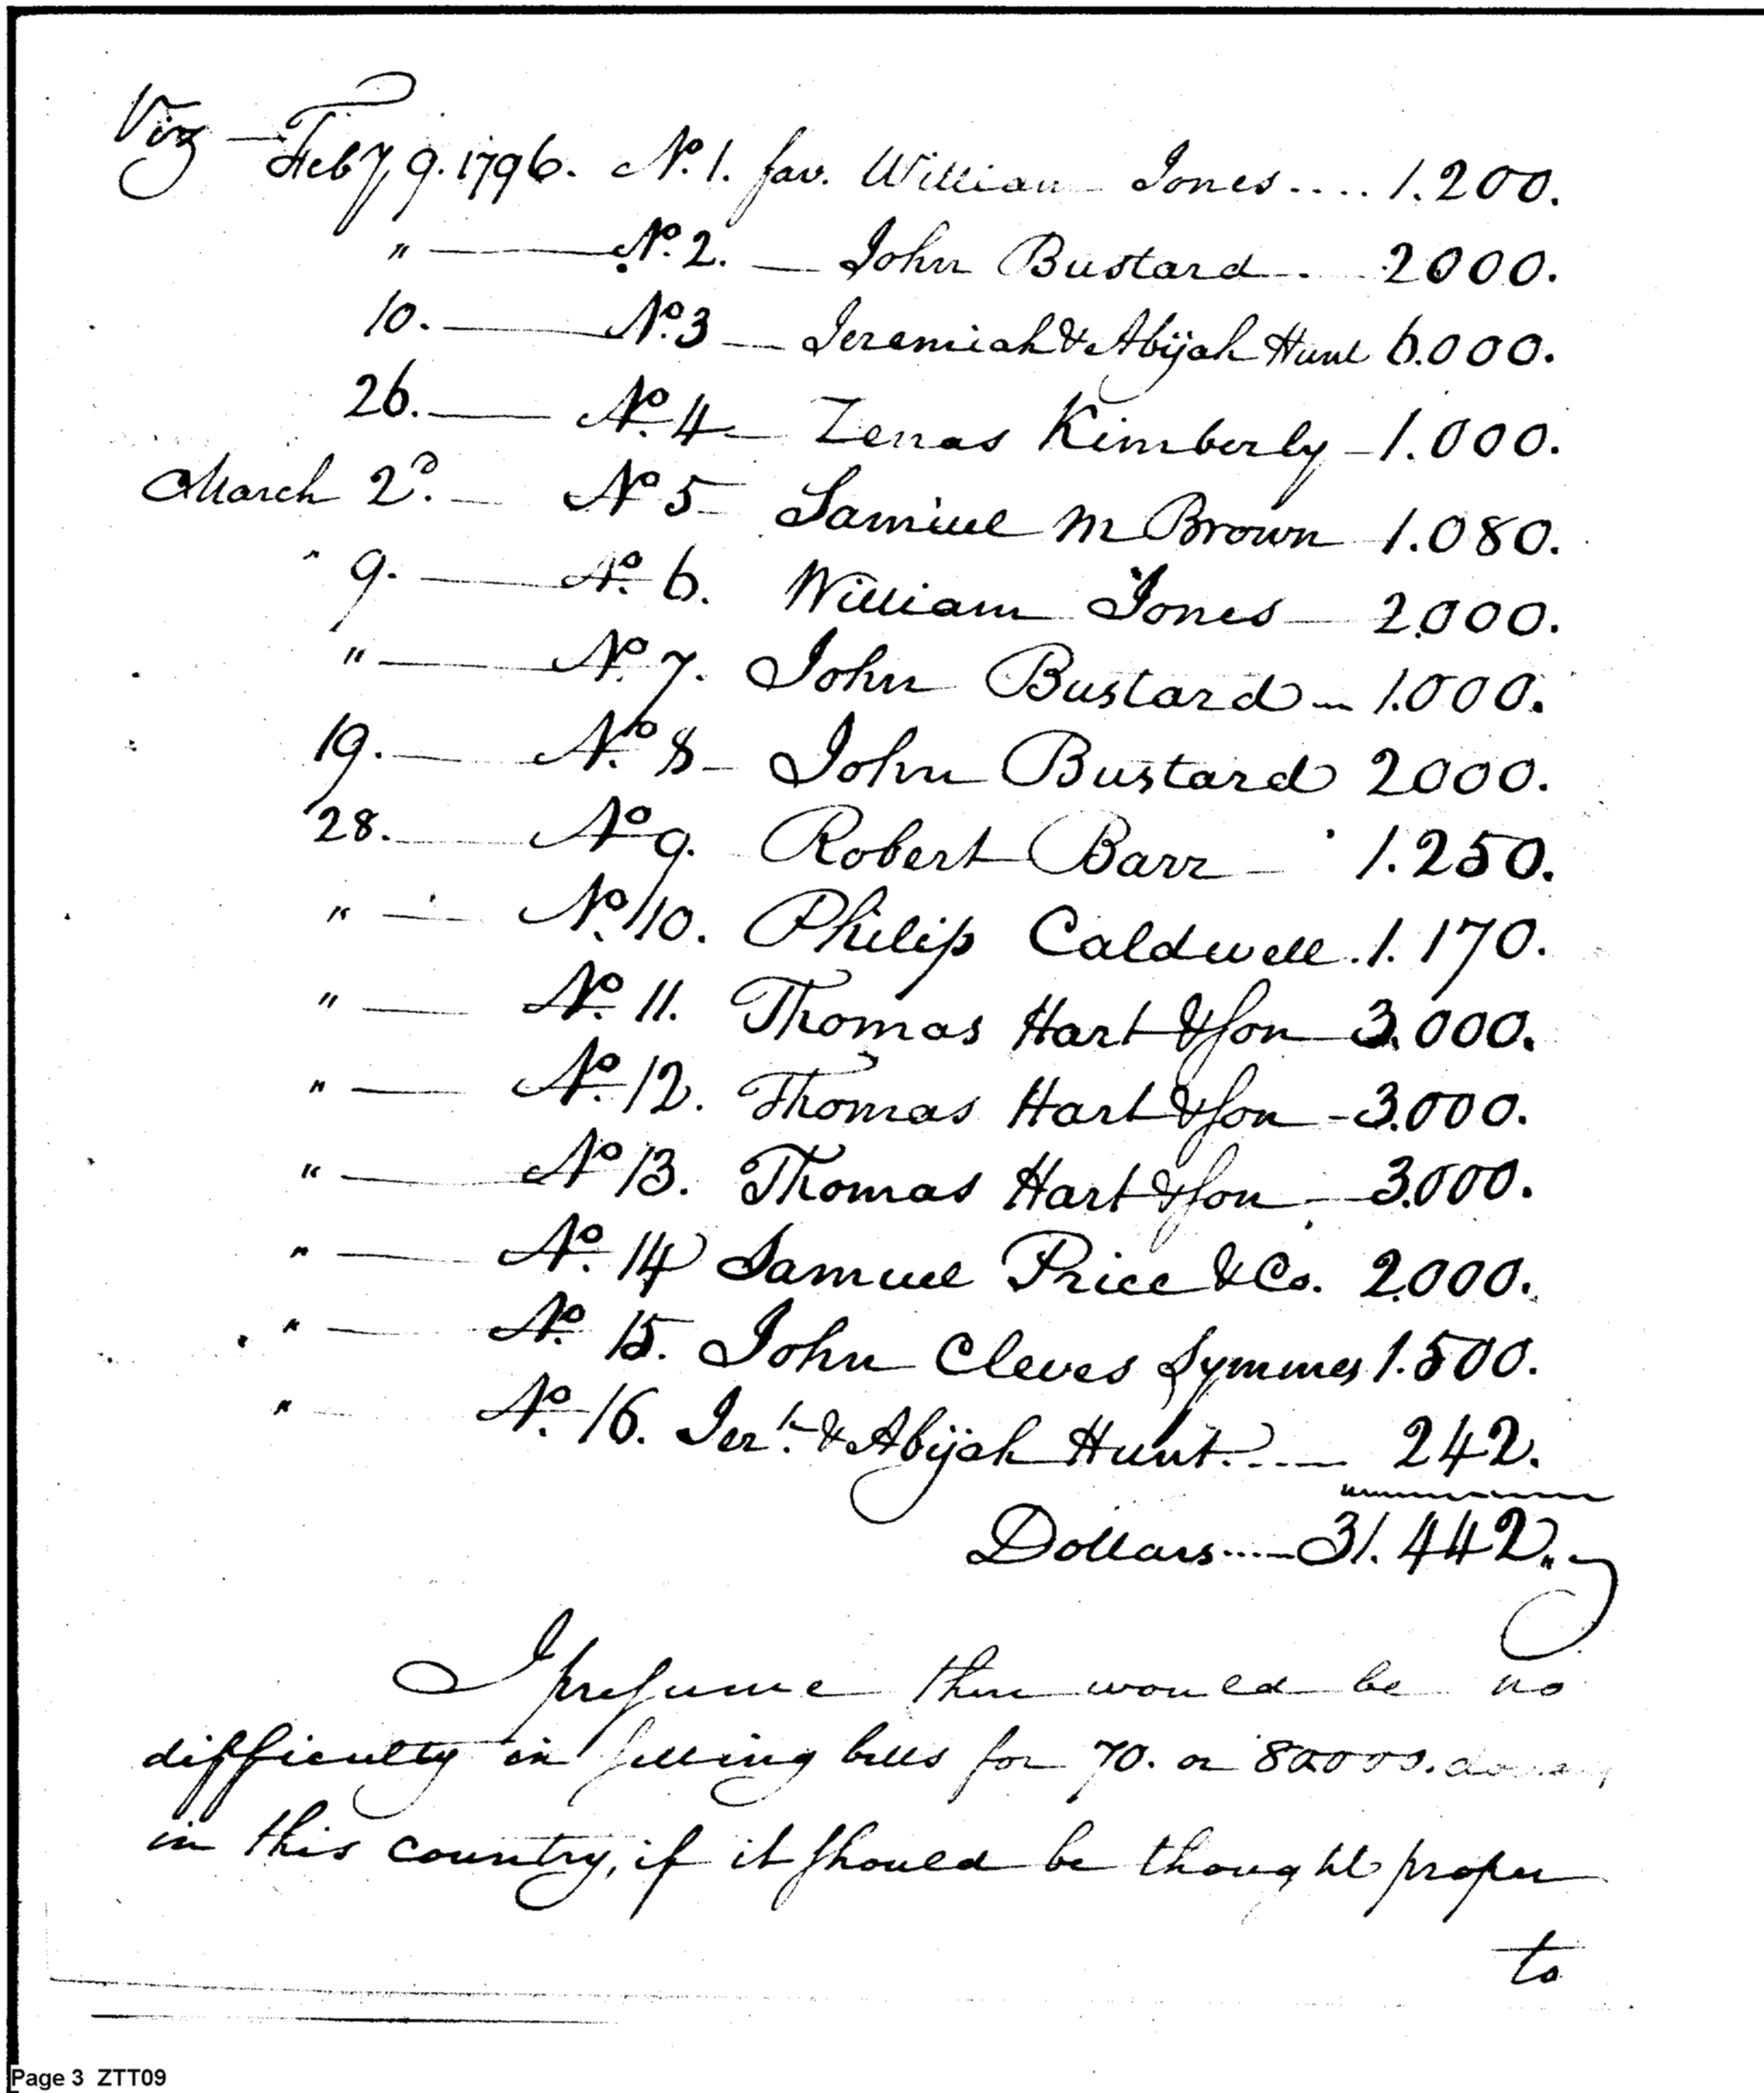 Viz — Feby 9. 1796. No. 1. fav. William Jones .... 1.200.
" — No. 2. — John Bustard .. 2000.
10. — No. 3 — Jeremiah & Abijah Hunt 6.000.
26. — No. 4 — Zenas Kimberly — 1.000.
March 2d. — No 5 — Samuel M Brown 1.080.
" 9. — No. 6. William Jones — 2.000.
" — No. 7. John Bustard — 1.000.
19. — No. 8 — John Bustard 2000.
28. — No 9. Robert Barr — 1.250.
" — No. 10. Philip Caldwell . 1.170.
" — No. 11. Thomas Hart & Son — 3.000.
" — No. 12. Thomas Hart & Son — 3.000.
" — No 13. Thomas Hart & Son — 3.000.
" — No. 14 Samuel Price & Co. 2.000.
" — No. 15. John Cleves Symmes 1.500.
" — No. 16. Jerh. & Abijah Hunt .... 242.
Dollars .... 31.442.
I presume there would be no
difficulty in selling bills for 70. or 80.000. dollars
in this country, if it should be thought proper
to
Page 3 ZTT09